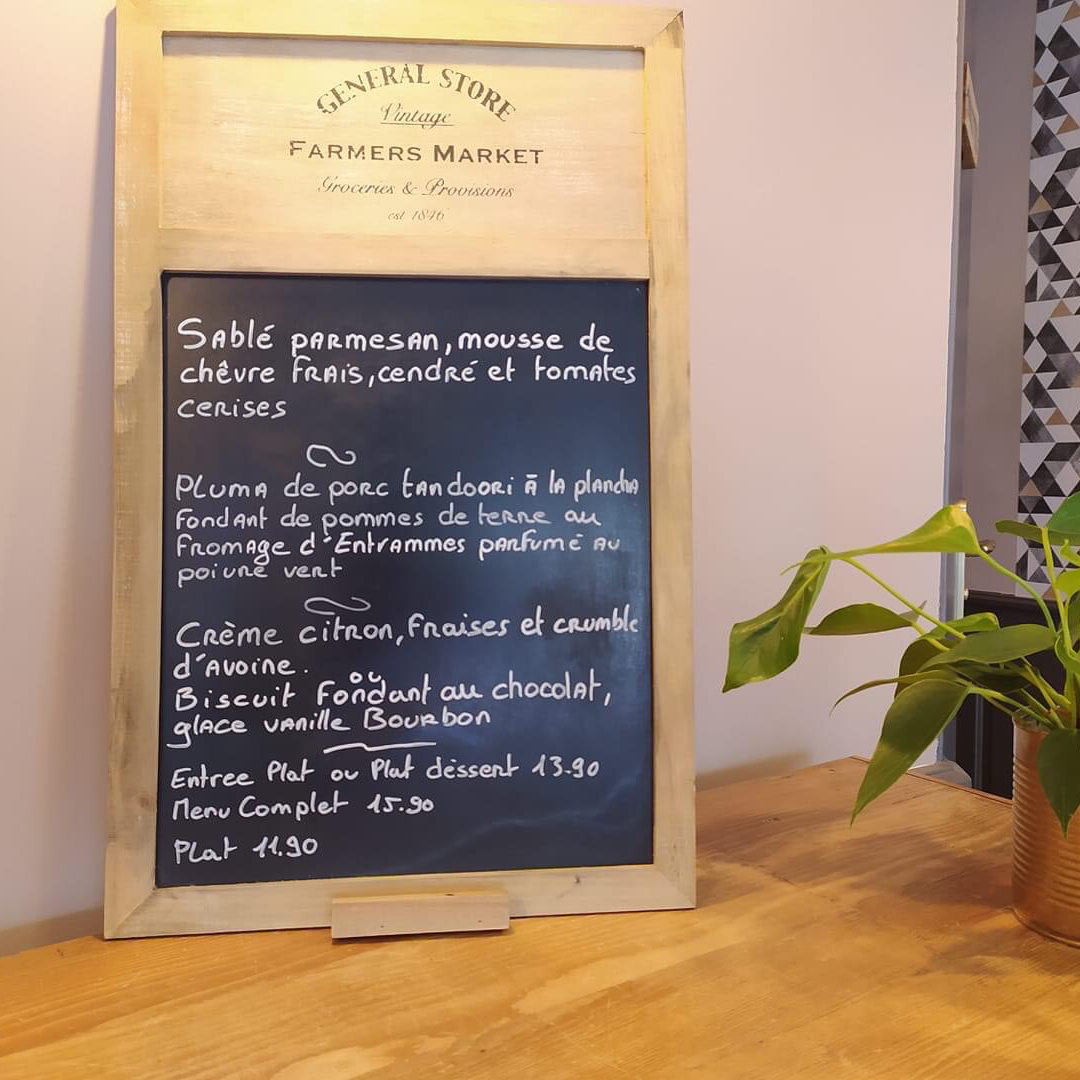 GENERAL STORE
Vintage
FARMERS MARKET
Groceries & Provisions
est 1846
Sablé parmesan, mousse de
chêvre frais, cendré et tomates
cerises
Pluma de porc tandoori à la plancha
Fondant de pommes de terre au
fromage d'Entrammes parfumé au
poivre vert
Crème citron, fraises et crumble
d'avoine.
ou
Biscuit fondant au chocolat,
glace vanille Bourbon
Entree Plat ou Plat dèssert 13.90
Menu Complet 15.90
Plat 11.90